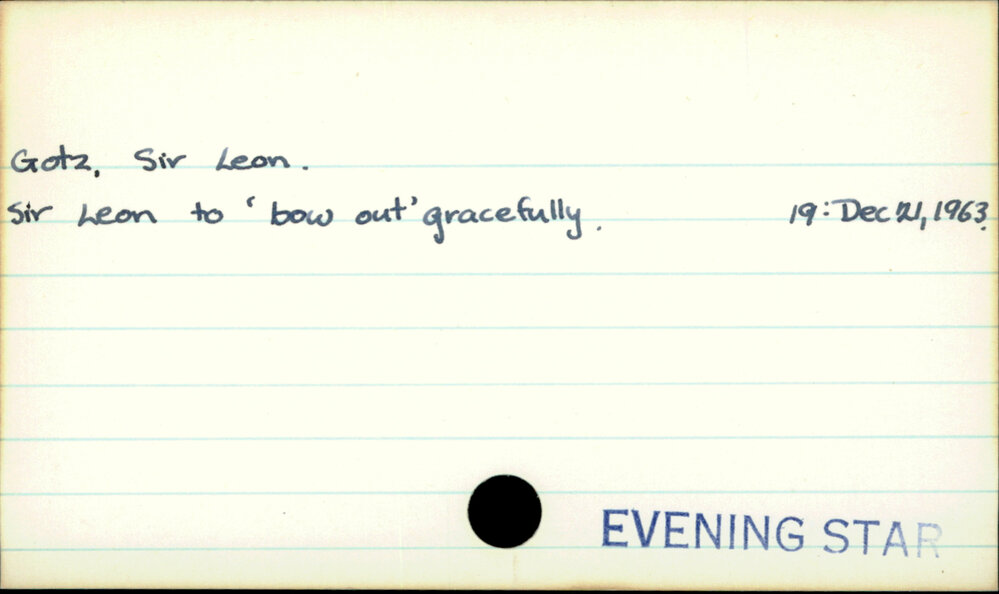 Gotz, Sir Leon.
Sir Leon to 'bow out' gracefully. 19: Dec 21, 1963.
EVENING STAR